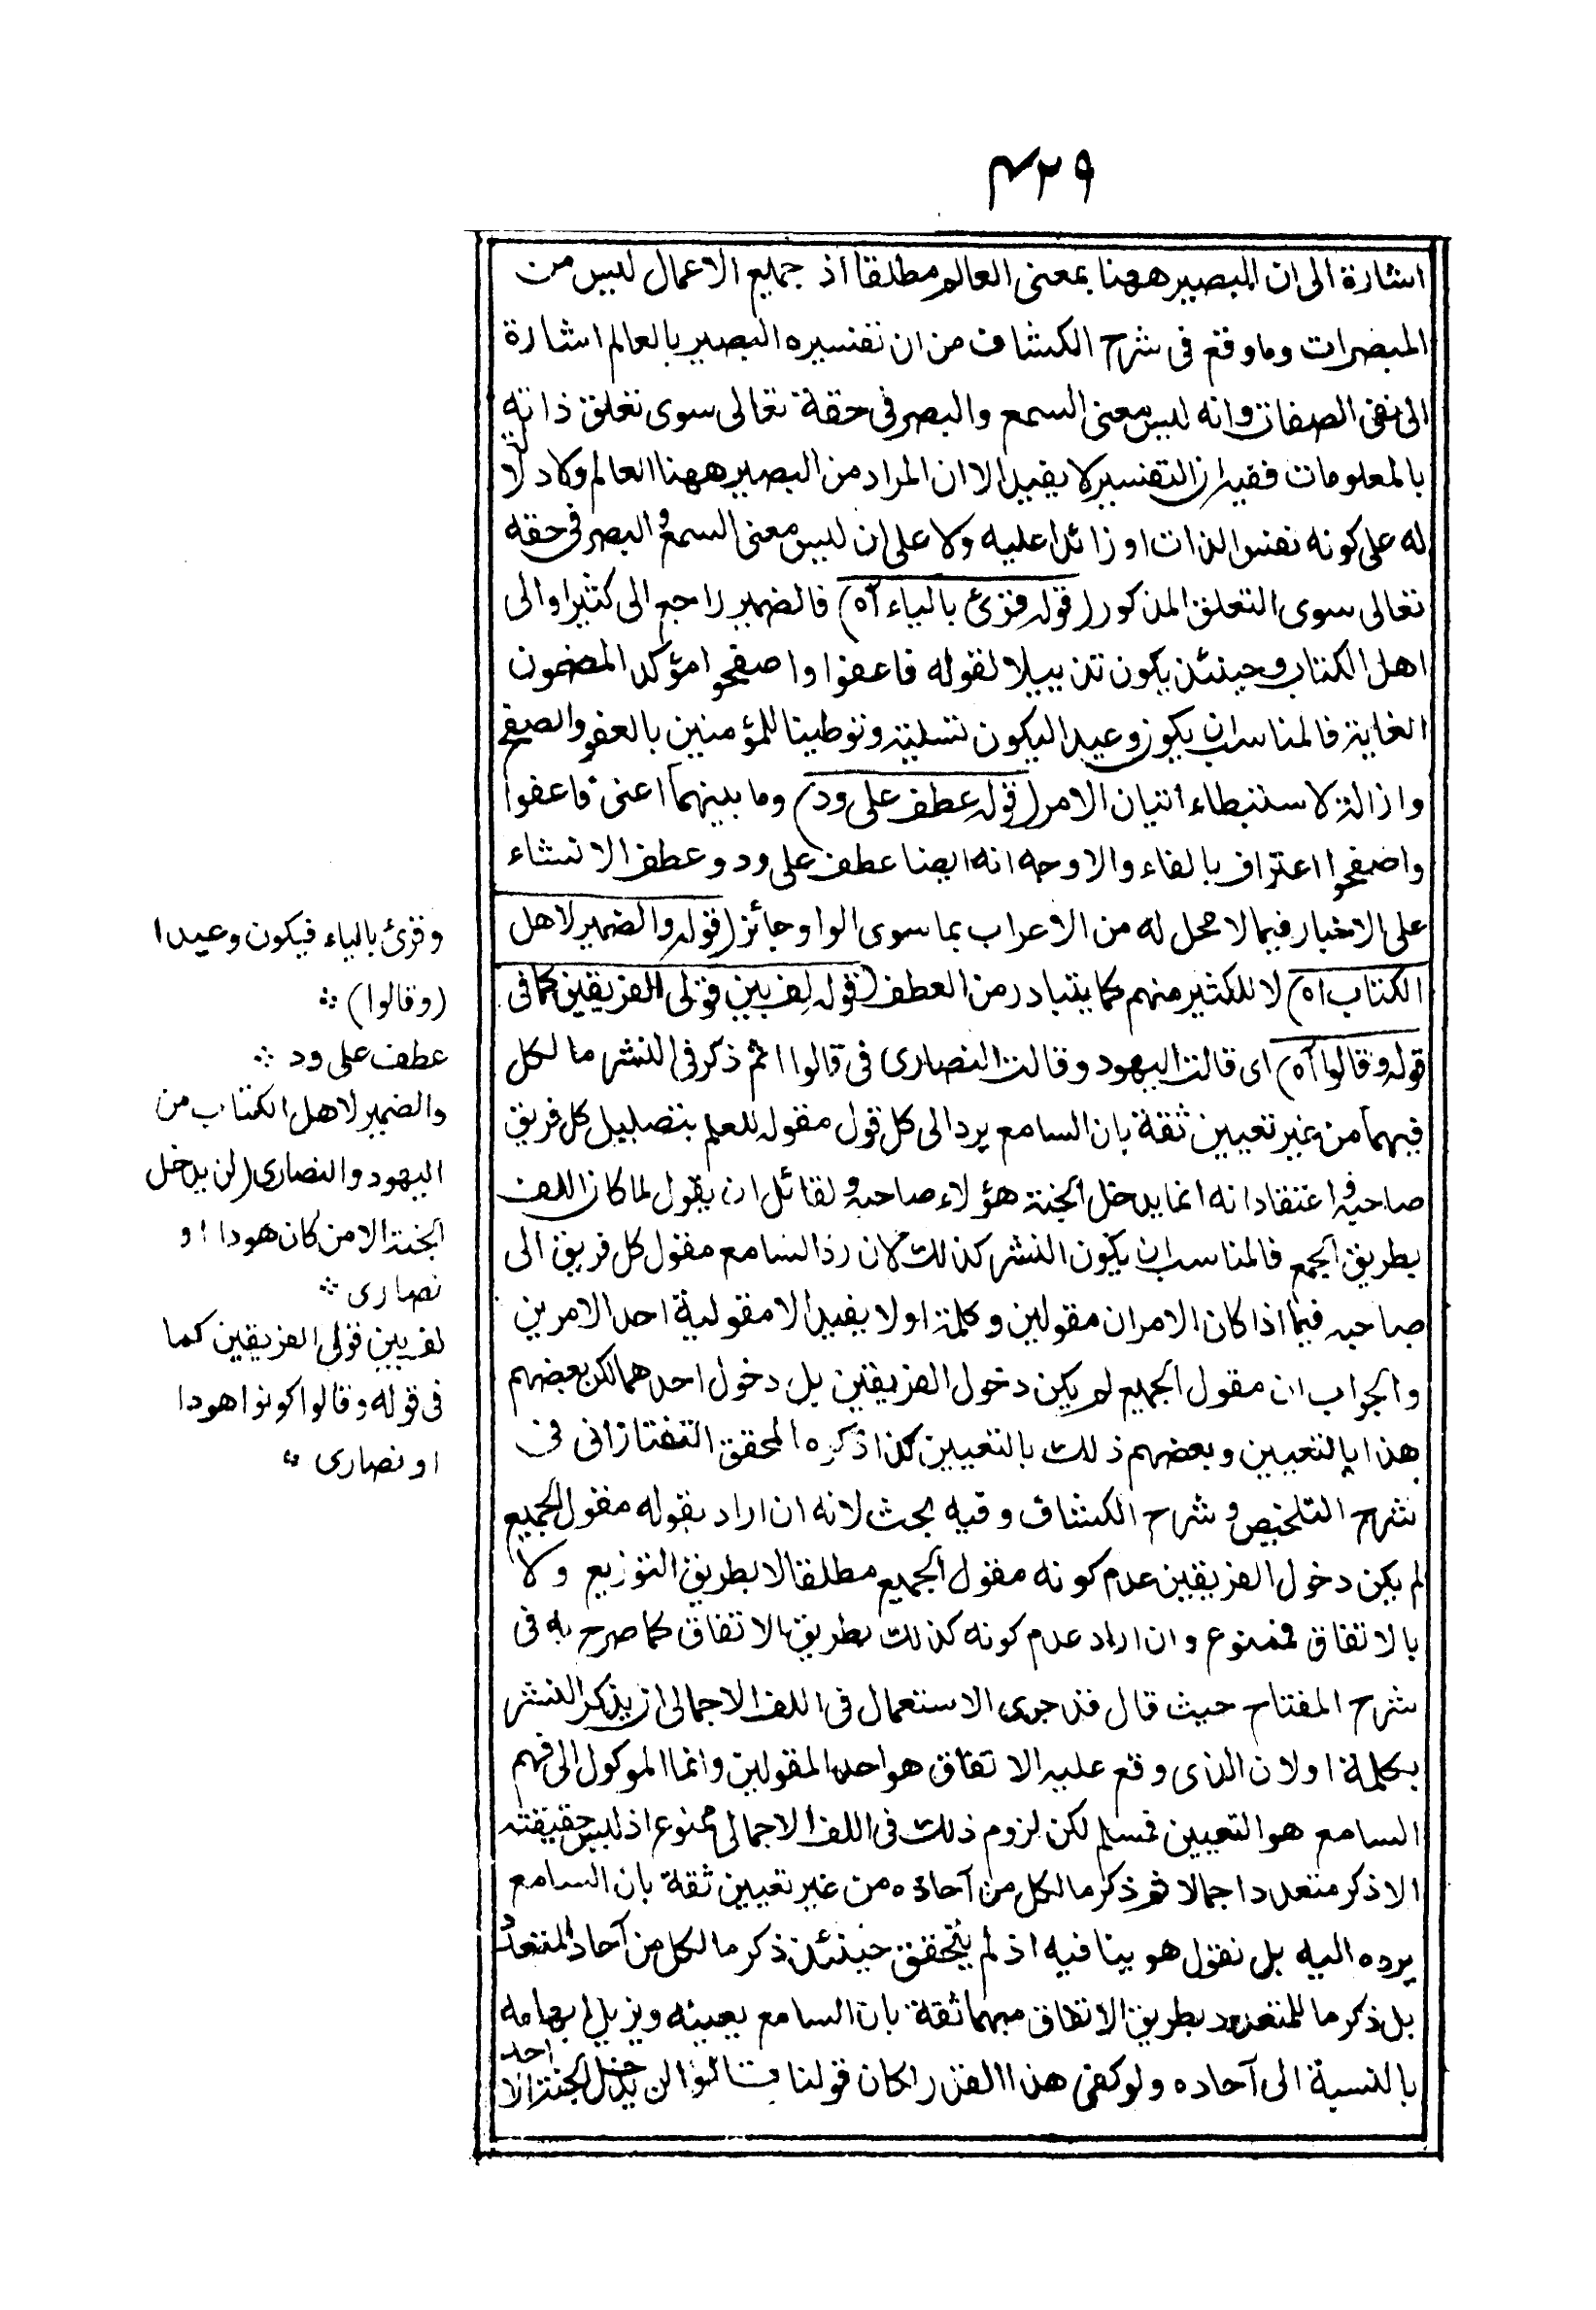 ۴۲۹
اشارة الى ان البصير ههنا بمعنى العالم مطلقا اذ جميع الاعمال ليس من
المبصرات وما وقع فى شرح الكشاف من ان تفسيره البصير بالعالم اشارة
الى نفى الصفات وانه ليس معنى السمع والبصر فى حقه تعالى سوى تعلق ذاته
بالمعلومات ففيه ان التفسير لا يفيد الا ان المراد من البصير ههنا العالم ولا دلالة
له على كونه نفس الذات او زائدا عليه ولا على ان ليس معنى السمع والبصر فى حقه
تعالى سوى التعلق المذكور (قوله وقرئ بالياء آه) فالضمير راجع الى كثير او الى
اهل الكتاب وحينئذ يكون تذييلا لقوله فاعفوا واصفحوا مؤكدا لمضمون
الغاية فالمناسب ان يكون وعيدا ليكون تسلية وتوطينا للمؤمنين بالعفو والصفح
وازالة لاستبطاء اتيان الامر (قوله عطف على ود) وما بينهما اعنى فاعفوا
واصفحوا اعتراف بالفاء والاوجه انه ايضا عطف على ود وعطف الانشاء
على الاخبار فيما لا محل له من الاعراب بما سوى الواو جائز (قوله والضمير لاهل
الكتاب آه) لا للكثير منهم كما يتبادر من العطف (قوله لف بين قولى الفريقين كما فى
قوله وقالوا آه) اى قالت اليهود وقالت النصارى فى قالوا اثم ذكر فى النشر ما لكل
فيهما من غير تعيين ثقة بان السامع يرد الى كل قول مقوله للعلم بتضليل كل فريق
صاحبه واعتقاد انه انما يدخل الجنة هؤلاء صاحبه ولقائل ان يقول لما كان اللف
بطريق الجمع فالمناسب ان يكون النشر كذلك لان رد السامع مقول كل فريق الى
صاحبه فيما اذا كان الامران مقولين وكلمة او لا يفيد الا مقولية احد الامرين
والجواب ان مقول الجميع لم يكن دخول الفريقين بل دخول احدهما لكن بعضهم
هذا بالتعيين وبعضهم ذلك بالتعيين كذا ذكره المحقق التفتازانى فى
شرح التلخيص وشرح الكشاف وفيه بحث لانه ان اراد بقوله مقول الجميع
لم يكن دخول الفريقين عدم كونه مقول الجميع مطلقا لا بطريق التوزيع ولا
بالاتفاق فممنوع وان اراد عدم كونه كذلك بطريق الاتفاق كما صرح به فى
شرح المفتاح حيث قال قد جرى الاستعمال فى اللف الاجمالى ان يذكر النشر
بكلمة او لان الذى وقع عليه الاتفاق هو احد المقولين وانما الموكول الى فهم
السامع هو التعيين فمسلم لكن لزوم ذلك فى اللف الاجمالى ممنوع اذ ليس حقيقته
الا ذكر متعدد اجمالا ثم ذكر ما لكل من آحاده من غير تعيين ثقة بان السامع
يرده اليه بل نقول هو ينافيه اذ لم يتحقق حينئذ ذكر ما لكل من آحاد المتعدد
بل ذكر ما للمتعدد بطريق الاتفاق مبهما ثقة بان السامع يعينه ويزيل ابهامه
بالنسبة الى آحاده ولو كفى هذا القدر لكان قولنا قالوا لن يدخل الجنة الا احد
وقرئ بالياء فيكون وعيدا
(وقالوا) ؞
عطف على ود ؞
والضمير لاهل الكتاب من
اليهود والنصارى (لن يدخل
الجنة الا من كان هودا او
نصارى ؞
لف بين قولى الفريقين كما
فى قوله وقالوا كونوا هودا
او نصارى ؞